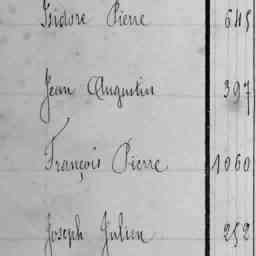 Isidore Pierre 645
Jean Augustin 397
François Pierre 1060
Joseph Julien 252